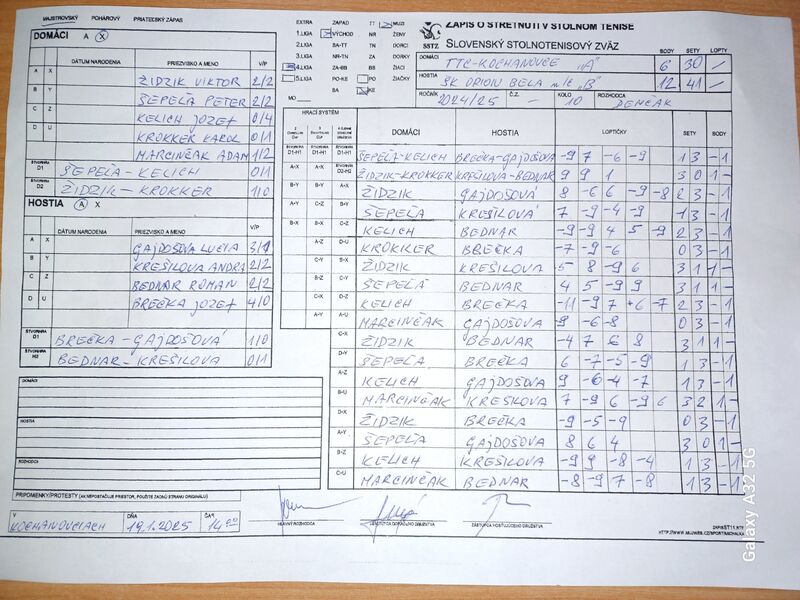 MAJSTROVSKÝ POHÁROVÝ PRIATEĽSKÝ ZÁPAS
EXTRA ZÁPAD TT MUŽI
1.LIGA VÝCHOD NR ŽENY
2.LIGA BA-TT TN DORCI
3.LIGA NR-TN ZA DORKY
4.LIGA ZA-BB BB ŽIACI
5.LIGA PO-KE PO ŽIAČKY
BA KE
MO
ZÁPIS O STRETNUTÍ V STOLNOM TENISE
SSTZ SLOVENSKÝ STOLNOTENISOVÝ ZVÄZ
BODY SETY LOPTY
DOMÁCI TTC-KOCHANOVCE "A" 6 30 /
HOSTIA ŠK ORION BELA n/C "B" 12 41 /
ROČNÍK 2024/25 Č.Z. - KOLO 10 ROZHODCA DENČÁK
DOMÁCI A X
DÁTUM NARODENIA PRIEZVISKO A MENO V/P
A X ŽIDZIK VIKTOR 2/2
B Y ŠEPEĽA PETER 2/2
C Z KELICH JOZEF 0/4
D U KROKKER KAROL 0/1
MARCINČÁK ADAM 1/2
ŠTVORHRA D1 ŠEPEĽA - KELICH 0/1
ŠTVORHRA D2 ŽIDZIK - KROKKER 1/0
HOSTIA A X
DÁTUM NARODENIA PRIEZVISKO A MENO V/P
A X GAJDOŠOVÁ LUCIA 3/1
B Y KREŠILOVA ANDREA 2/2
C Z BEDNAR ROMAN 2/2
D U BREČKA JOZEF 4/0
ŠTVORHRA BREČKA - GAJDOŠOVÁ 1/0
ŠTVORHRA H2 BEDNAR - KREŠILOVA 0/1
HRACÍ SYSTÉM
DOMÁCI HOSTIA LOPTIČKY SETY BODY
ŠEPEĽA-KELICH BREČKA-GAJDOŠOVÁ -9 7 -6 -9 1 3 - 1
ŽIDZIK-KROKKER KREŠILOVA-BEDNAR 9 9 1 3 0 1 -
ŽIDZIK GAJDOŠOVÁ 8 -6 6 -9 -8 2 3 - 1
ŠEPEĽA KREŠILOVÁ 7 -9 -4 -9 1 3 - 1
KELICH BEDNAR -9 -9 4 5 -9 2 3 - 1
KROKKER BREČKA -7 -9 -6 0 3 - 1
ŽIDZIK KREŠILOVA 5 8 -9 6 3 1 1 -
ŠEPEĽA BEDNAR 4 5 -9 9 3 1 1 -
KELICH BREČKA -11 -9 7 6 -7 2 3 - 1
MARCINČÁK GAJDOŠOVA -9 -6 -8 0 3 - 1
ŽIDZIK BEDNAR -4 7 6 8 3 1 1 -
ŠEPEĽA BREČKA 6 -7 -5 -9 1 3 - 1
KELICH GAJDOŠOVA 9 -6 -4 -7 1 3 - 1
MARCINČÁK KREŠILOVA 7 -9 6 -9 6 3 2 1 -
ŽIDZIK BREČKA -9 -5 -9 0 3 - 1
ŠEPEĽA GAJDOŠOVA 8 6 4 3 0 1 -
KELICH KREŠILOVA -9 9 -8 -4 1 3 - 1
MARCINČÁK BEDNAR -8 -9 7 -8 1 3 - 1
DOMÁCI
HOSTIA
ROZHODCA
PRIPOMIENKY/PROTESTY (AK NEPOSTAČUJE PRIESTOR, POUŽITE ZADNÚ STRANU ORIGINÁLU)
V KOCHANOVCIACH DŇA 19.1.2025 ČAS 14 00
HLAVNÝ ROZHODCA ZÁSTUPCA DOMÁCEHO DRUŽSTVA ZÁSTUPCA HOSŤUJÚCEHO DRUŽSTVA
Galaxy A32 5G